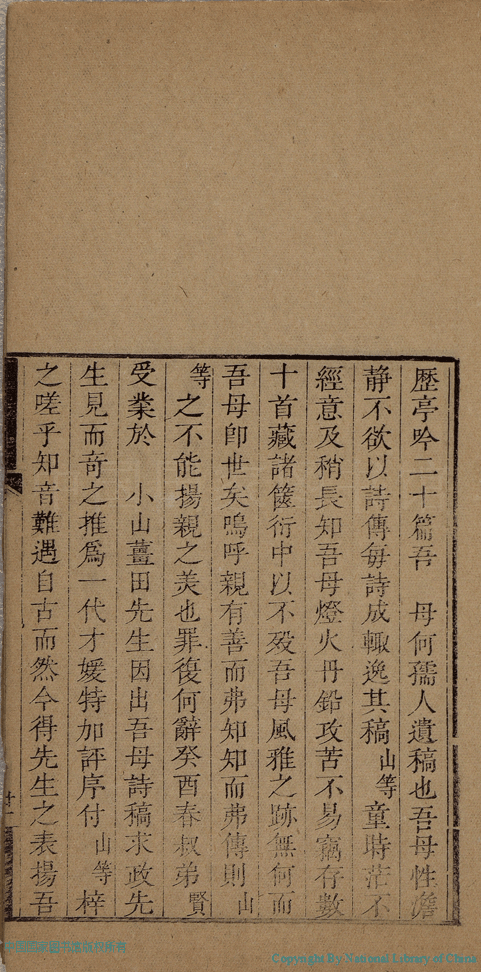 歷亭吟二十篇吾　母何孺人遺稿也吾母性澹
静不欲以詩傳每詩成輙逸其稿山等童時茫不
經意及稍長知吾母燈火丹鉛攻苦不易竊存數
十首藏諸篋衍中以不歿吾母風雅之跡無何而
吾母即世矣嗚呼親有善而弗知知而弗傳則山
等之不能揚親之美也罪復何辭癸酉春叔弟賢
受業於　小山薑田先生因出吾母詩稿求政先
生見而奇之推爲一代才媛特加評序付山等梓
之嗟乎知音難遇自古而然今得先生之表揚吾
Copyright By National Library of China